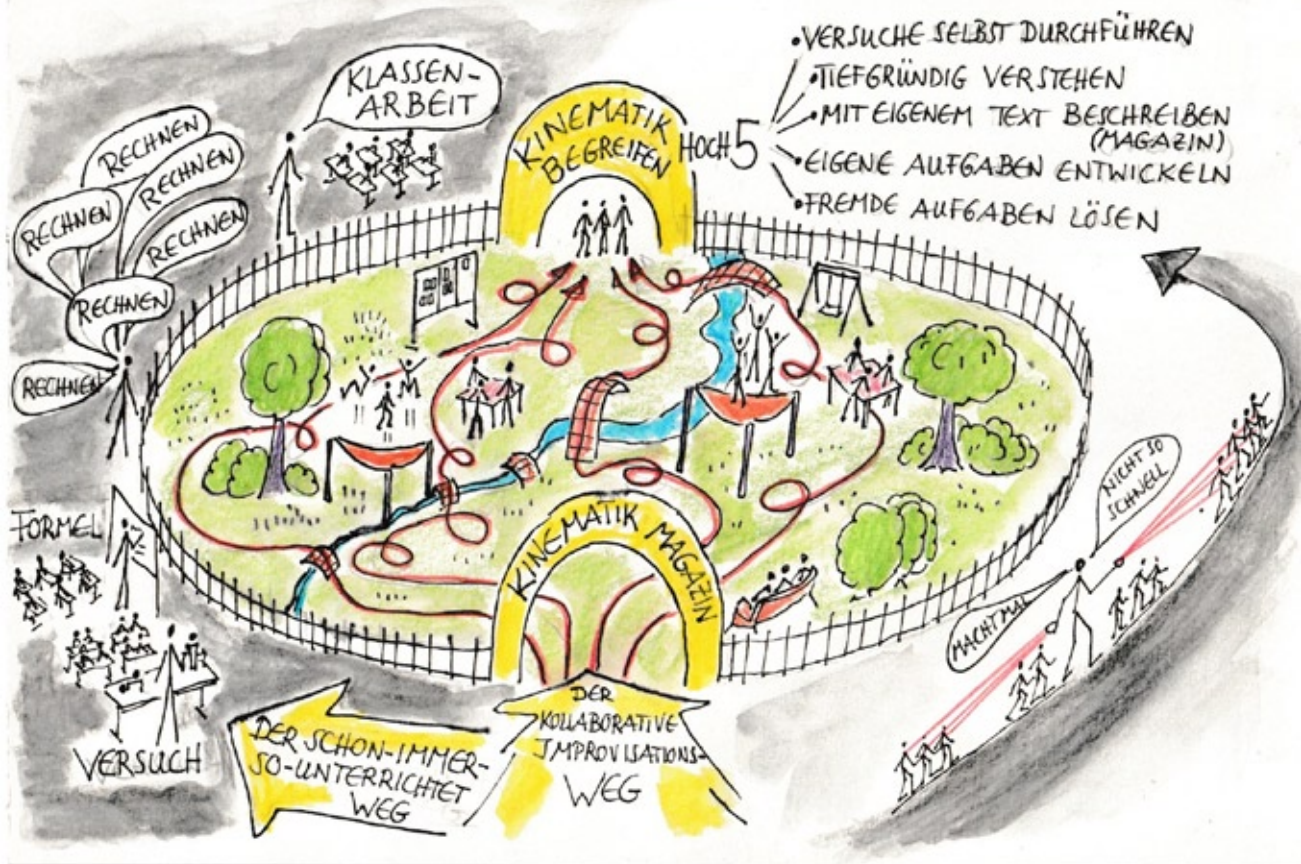 KLASSEN-
ARBEIT
RECHNEN
RECHNEN
RECHNEN
RECHNEN
RECHNEN
RECHNEN
KINEMATIK
BEGREIFEN
HOCH 5
• VERSUCHE SELBST DURCHFÜHREN
• TIEFGRÜNDIG VERSTEHEN
• MIT EIGENEM TEXT BESCHREIBEN
(MAGAZIN)
• EIGENE AUFGABEN ENTWICKELN
• FREMDE AUFGABEN LÖSEN
FORMEL
VERSUCH
KINEMATIK MAGAZIN
NICHT SO
SCHNELL
MACHT MAL
DER SCHON-IMMER-
SO-UNTERRICHTET
WEG
DER
KOLLABORATIVE
IMPROVISATIONS-
WEG